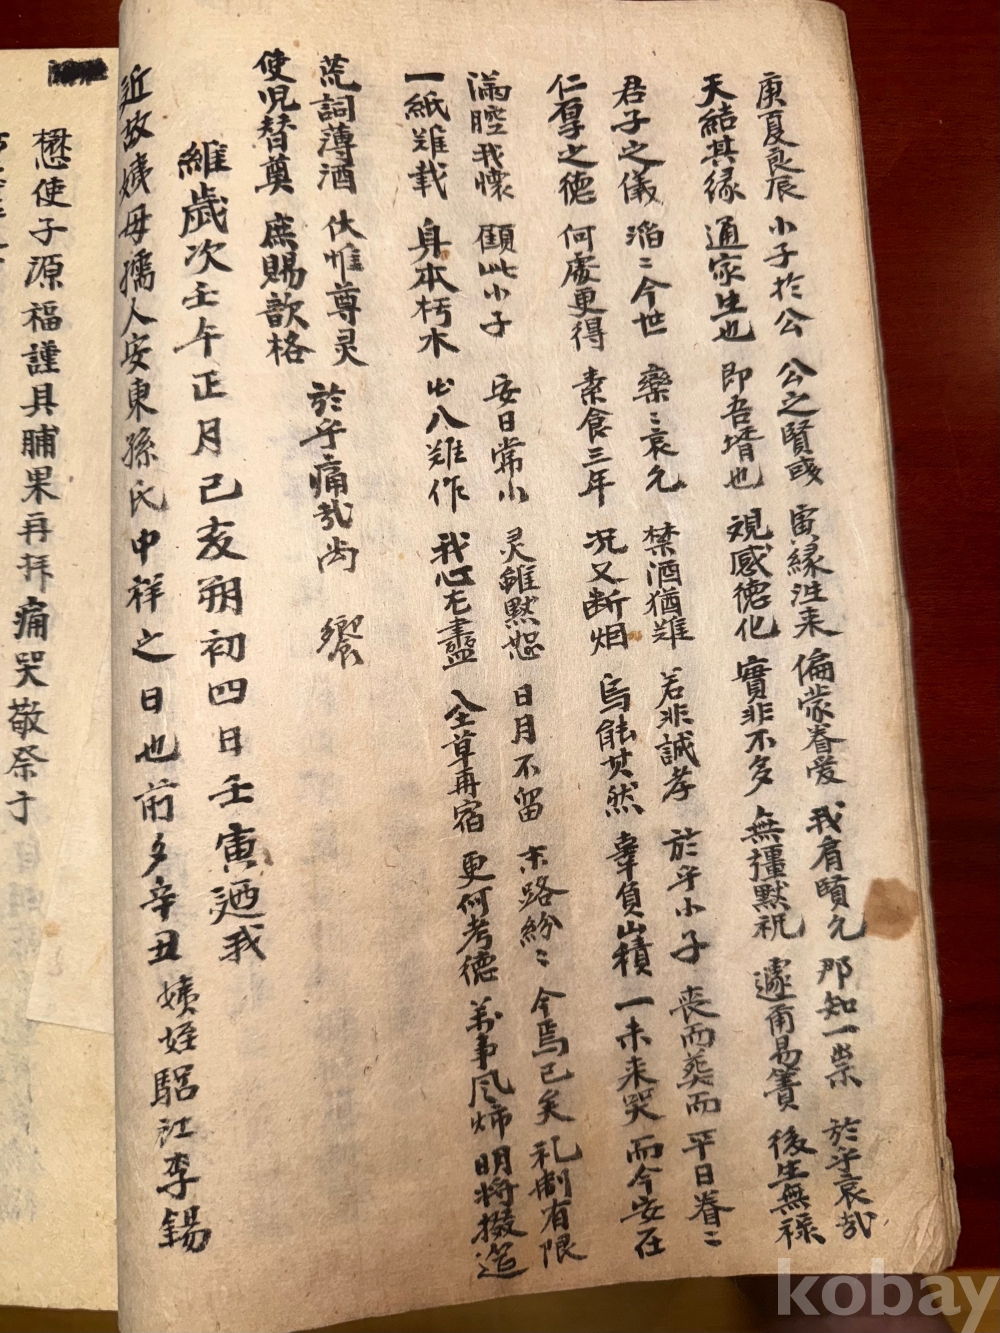 庚夏良辰 小子於公 公之賢或 寅緣往来 偏蒙眷爱 我肩賢允 那知一祟 於乎哀哉
天結其缘 通家生也 即吾壻也 視感德化 實非不多 無彊默祝 遽甭易簀 後生無祿
君子之儀 滔〻今世 欒〻哀允 禁酒猶难 若非誠孝 於乎小子 丧而葬而 平日眷〻
仁厚之德 何處更得 素食三年 况又断烟 烏能其然 辜負山積 一未来哭 而今安在
滿腔我懷 顧此小子 安日常小 灵雖默恕 日月不留 末路紛〻 今焉已矣 礼制有限
一紙难载 身本朽木 出八难作 我心旡盡 全草再宿 更何考德 萬事风
明将掇造
荒詞薄酒 伏惟尊灵 於乎痛哉尚 饗
使児替奠 庶賜歆格
維歲次壬午正月己亥朔初四日壬寅廼我
近故姨母孺人安東孫氏中祥之日也前夕辛丑姨姪驪江李錫
懋使子源福謹具脯果再拜痛哭敬祭于
kobay